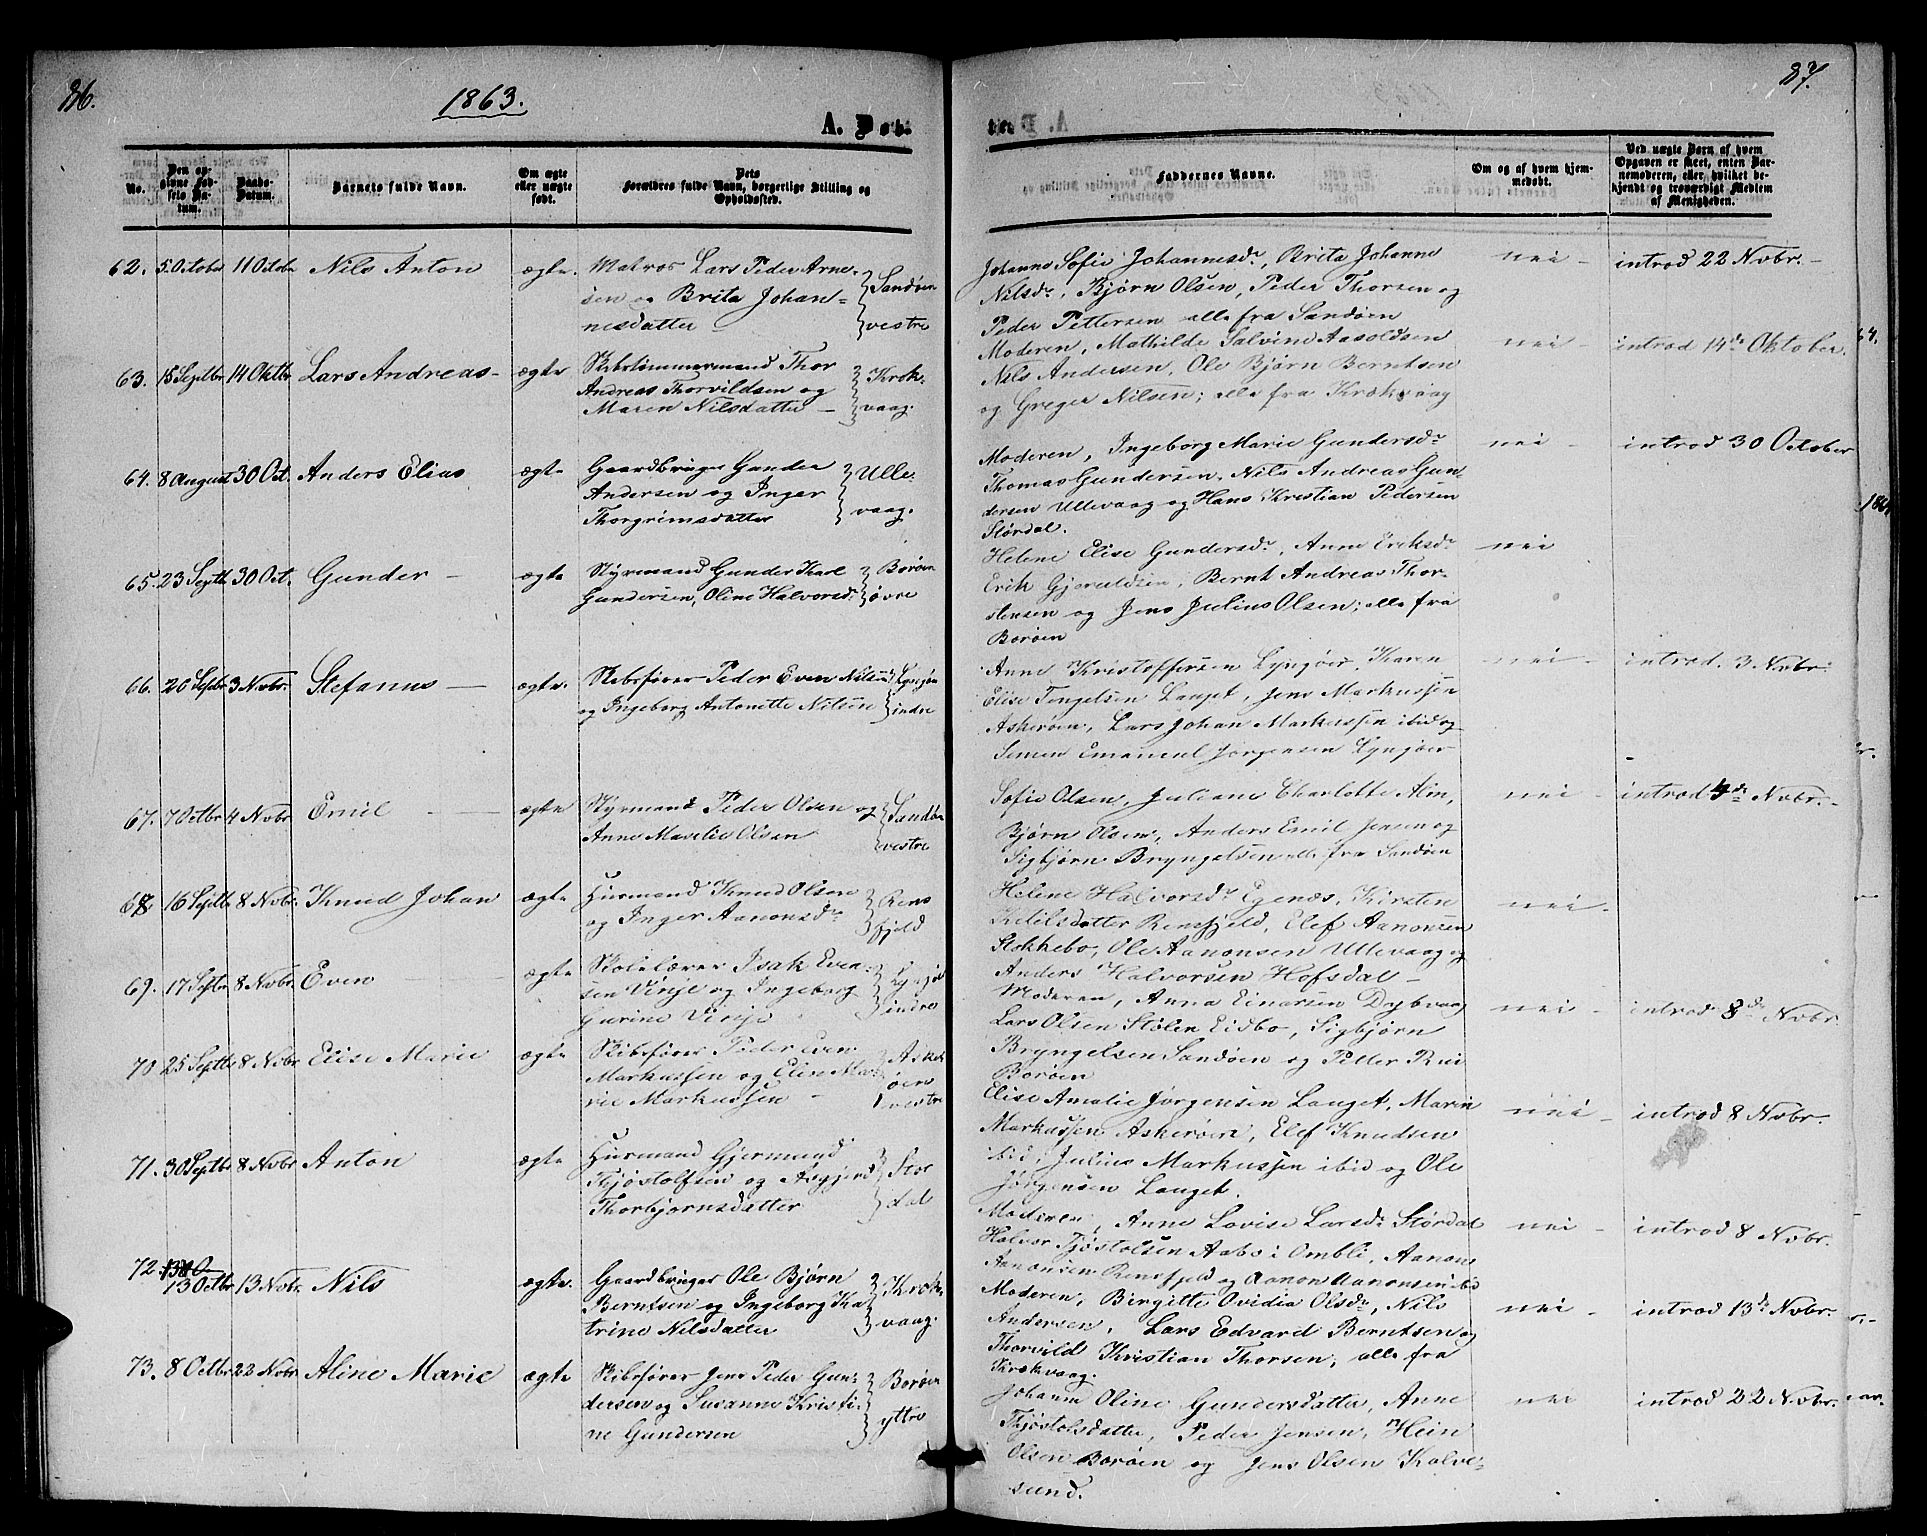 86.
1863.
A. Døb.
No.
Den opgivne Fødsels Datum.
Daabs-Datum.
Barnets fulde Navn.
Om ægte eller uægte født.
Dets Forældres fulde Navn, borgerlige Stilling og Opholdssted.
62. 5 October 11 October Nils Anton ægte. Matros Lars Peder Arne- Sandøen
sen og Brita Johan-
nesdatter vestre
63. 15 Septbr 14 Oktbr Lars Andreas - ægte Skibstømmermand Thor Krok-
Andreas Thorvildsen og
Maren Nilsdatter - vaag.
64. 8 August 30 Oct. Anders Elias ægte Gaardbruger Gunder Ulle-
Andersen og Inger
Thorgrimsdatter vaag.
65. 23 Septb. 30 Oct. Gunder - ægte Styrmand Gunder Karl Borøen
Gundersen, Oline Halvorsdr øvre
66. 20 Septbr 3 Novbr. Stefanus - ægte. Skibsfører Peder Even Nilsen Lyngøer
og Ingeborg Antonette Nilsen indre
67. 7 Octbr 4 Nvbr Emil - ægte Styrmand Peder Olsen og Sandøen
Anne Marelie Olsen vestre
68 16 Septbr 8 Novbr. Knud Johan ægte Husmand Knud Olsen Rens
og Inger Aanonsdr fjeld
69. 17 Septbr 8 Novbr. Even - ægte Skolelærer Isak Even- Lyngør
sen Vinje og Ingeborg
Gurine Vinje indre
70 25 Septbr 8 Nvbr Elise Marie ægte Skibsfører Peder Even Asker
Markussen og Elise Ma- øen
rie Markussen - vestre
71. 30 Septbr 8 Nvbr Anton ægte Husmand Gjermund Stor
Thjøstolfsen og Asgjerd
Thorbjørnsdatter dal
72. 13 Octbr 13 Novbr. Nils ægte. Gaardbruger Ole Bjørn Krok-
Berntsen og Ingeborg Ka-
trine Nilsdatter vaag.
73. 8 Octbr 22 Novbr Aline Marie ægte Skibsfører Jens Peder Gun- Borøen
dersen og Susanne Kristi-
ne Gundersen yttre
87.
Faddernes Navne.
Om og af hvem hjemmedøbt.
Ved uægte Børn af hvem Opgaven er skeet, enten Barnemoderen, eller, hvilket bekjendt og troværdigt Medlem af Menigheden.
Johanne Sofie Johannesdr, Brita Johanne nei - introd 22 Nvbr. -
Nilsdr, Bjørn Olsen, Peder Thorsen og
Peder Pettersen alle fra Sandøen
Moderen, Mathilde Salvine Aasoldsen nei - introd 14de Oktober.
Nils Andersen, Ole Bjørn Berntsen
og Greger Nilsen; alle fra Krokvaag
Moderen, Ingeborg Marie Gundersdr nei - introd 30 October
Thomas Gundersen, Nils Andreas Gun-
dersen Ullevaag og Hans Kristian Pedersen
Stordal.
Helene Elise Gundersdr, Anne Eriksdr nei
Erik Gjeruldsen, Bernt Andreas Thor-
stensen og Jens Julius Olsen; alle fra
Borøen
Anne Kristoffersen Lyngøer, Karen nei - introd. 3 Nvbr.
Elise Tengelsen Lauget, Jens Markussen
Askerøen, Lars Johan Markussen ibid og
Simen Emanuel Jørgensen Lyngøer
Sofie Olsen, Juliane Charlotte Alin, nei - introd 4de Nvbr. -
Bjørn Olsen, Anders Emil Jensen og
Sigbjørn Bryngelsen alle fra Sandøen
Helene Halvorsdr Egenæs, Kirsten nei -
Ketilsdatter Rensfjeld, Elef Aanonsen
Stokkebo, Ole Aanonsen Ullevaag og
Anders Halvorsen Hofsdal -
Moderen, Anna Einarsen Dybvaag nei - introd 8de Nvbr.
Lars Olsen Stølen Eidbo, Sigbjørn
Bryngelsen Sandøen og Petter Rui
Borøen
Elise Amalie Jørgensen Lauget, Marin nei - introd 8 Nvbr.
Markussen Askerøen, Elef Knudsen
ibid, Julius Markussen ibid og Ole
Jørgensen Lauget.
Moderen, Anne Lovise Larsdr Stordal nei - introd 8 Nvbr.
Halvor Tjøstolsen Aabø i Ombli, Aanon
Aanonsen Rensfjeld og Aanon Aanonsen ibid
Moderen, Birgitte Ovidia Olsdr, Nils nei - introd 13de Nvbr.
Andersen, Lars Edvard Berntsen og
Thorvild Kristian Thorsen; alle fra
Krokvaag.
Johanne Oline Gundersdatter, Anne nei introd 22 Nvbr.
Thjøstolsdatter, Peder Jensen, Hein
Olsen Borøen og Jens Olsen Kalve-
sund.